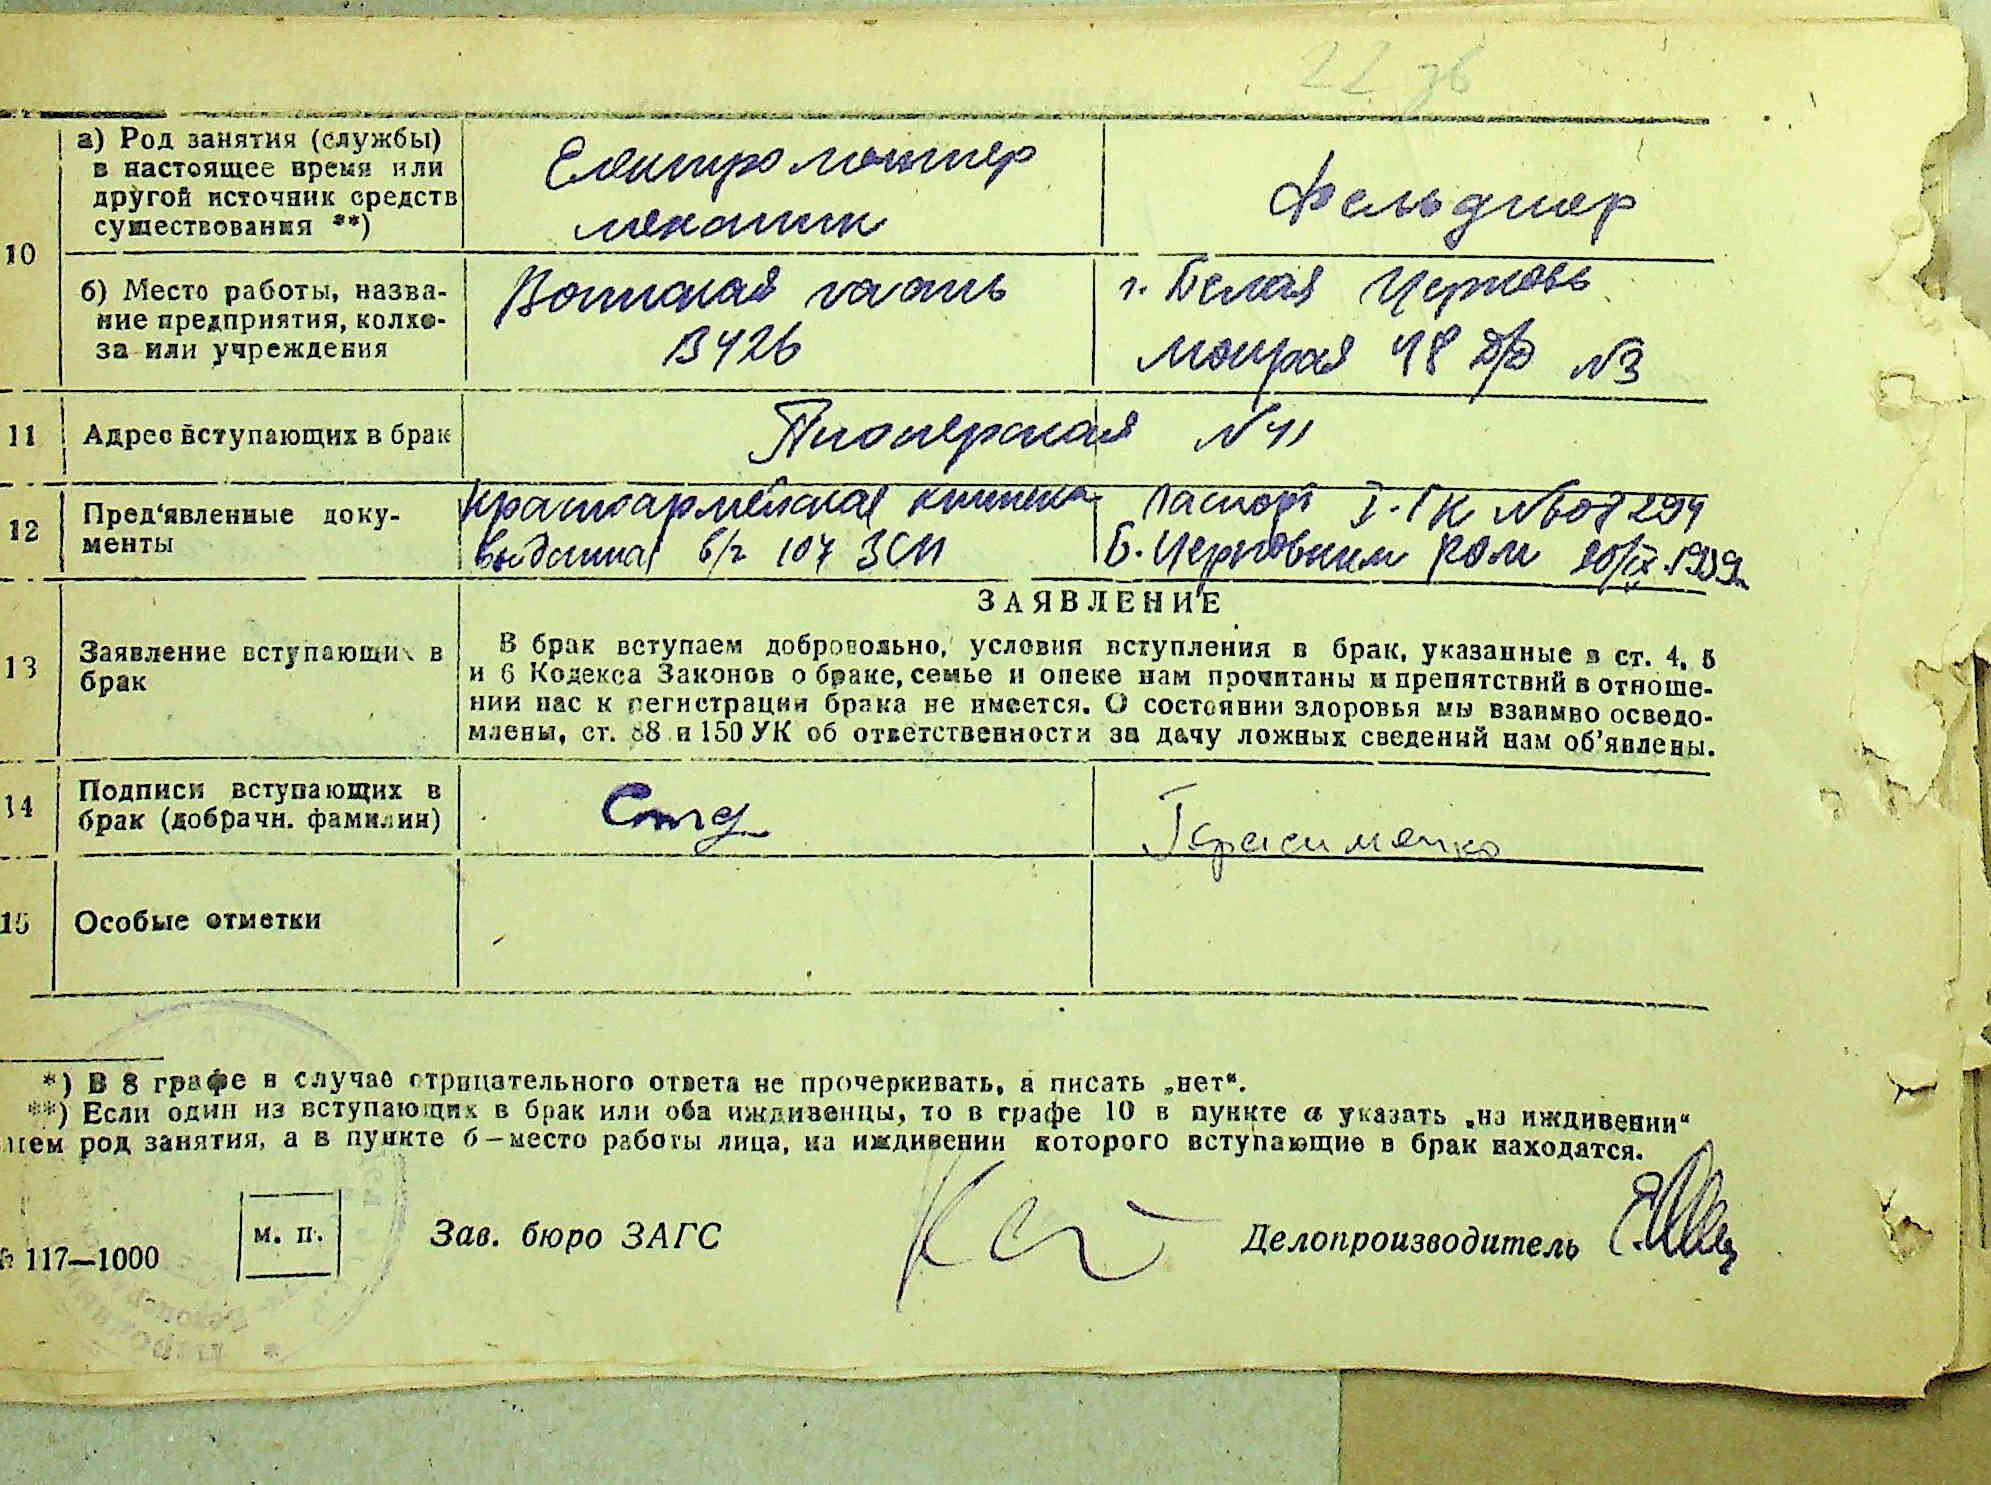 22 зв
10
а) Род занятия (службы)
в настоящее время или
другой источник средств
существования **)
Електромонтер
механик
Фельдшер
б) Место работы, назва-
ние предприятия, колхо-
за или учреждения
Воинская часть
В426
г. Белая Церковь
№3
11
Адрес вступающих в брак
Пионерская №11
12
Пред'явленные доку-
менты
Красноармейская книжка
выданная в/ч 107 ЗСП
Паспорт
Б. Церковским РОМ 20/IX.1939г
13
Заявление вступающих в
брак
ЗАЯВЛЕНИЕ
В брак вступаем добровольно, условия вступления в брак, указанные в ст. 4, 5
и 6 Кодекса Законов о браке, семье и опеке нам прочитаны и препятствий в отноше-
нии нас к регистрации брака не имеется. О состоянии здоровья мы взаимво осведо-
млены, ст. 88 и 150 УК об ответственности за дачу ложных сведений нам об'явлены.
14
Подписи вступающих в
брак (добрачн. фамилии)
Герасименко
15
Особые отметки
*) В 8 графе в случае отрицательного ответа не прочеркивать, а писать „нет".
**) Если один из вступающих в брак или оба иждивенцы, то в графе 10 в пункте а указать „на иждивении"
чем род занятия, а в пункте б—место работы лица, на иждивении которого вступающие в брак находятся.
№ 117—1000
м. п.
Зав. бюро ЗАГС
Делопроизводитель